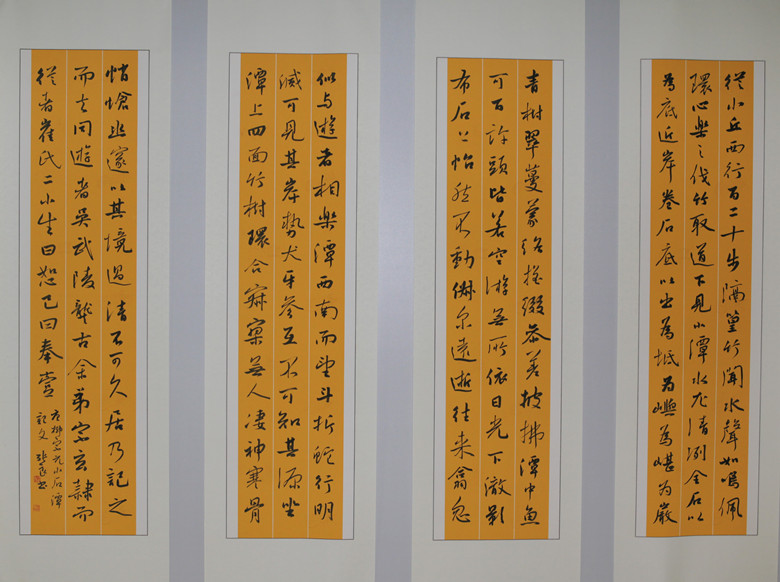 從小丘西行百二十步隔篁竹聞水聲如鳴佩
環心樂之伐竹取道下見小潭水尤清冽全石以
為底近岸卷石底以出為坻為嶼為嵁為巖
青樹翠蔓蒙絡搖綴參差披拂潭中魚
可百許頭皆若空游無所依日光下澈影
布石上怡然不動俶尔遠逝往來翕忽
似与遊者相樂潭西南而望斗折蛇行明
滅可見其岸勢犬牙參互不可知其源坐
潭上四面竹樹環合寂寥無人凄神寒骨
悄愴幽邃以其境過清不可久居乃記之
而去同遊者吳武陵龔古余弟宗玄隸而
從者崔氏二小生曰恕己曰奉壹
右柳宗元小石潭
記文